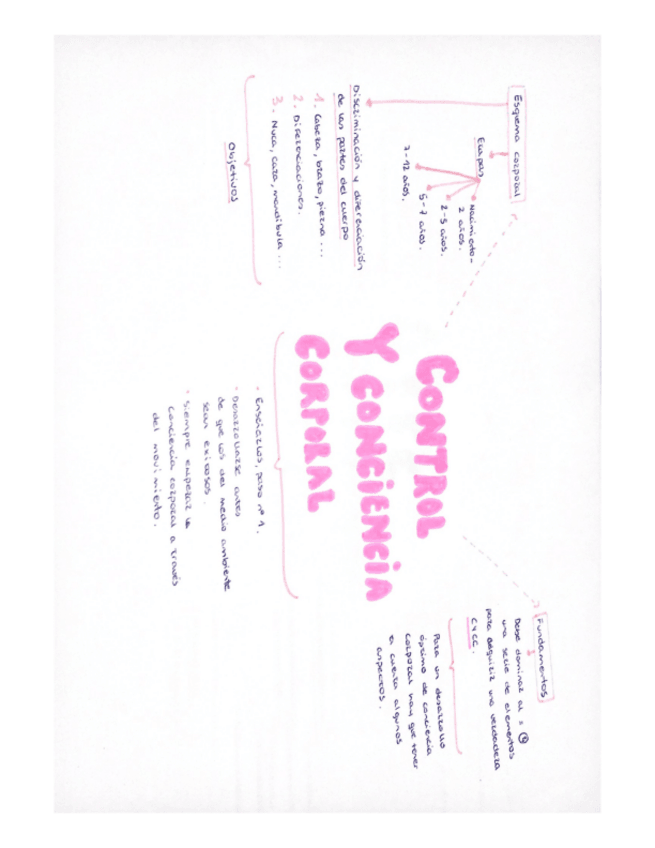 CONTROL
Y CONCIENCIA
CORPORAL
Esquema corporal
Etapas
Nacimiento-
2 años.
2-5 años.
5-7 años.
7-12 años.
Discriminación y diferenciación
de las partes del cuerpo
1. Cabeza, brazo, pierna ...
2. Diferenciaciones.
3. Nuca, cara, mandíbula ...
Objetivos
• Enseñarlos, paso nº 1.
• Desarrollarse antes
de que los del medio ambiente
sean exitosos.
• Siempre empezar la
conciencia corporal a través
del movimiento.
Fundamentos
Debe dominar al
una serie de elementos
para adquirir una verdadera
CYCC.
Para un desarrollo
óptimo de conciencia
corporal hay que tener
en cuenta algunos
aspectos.